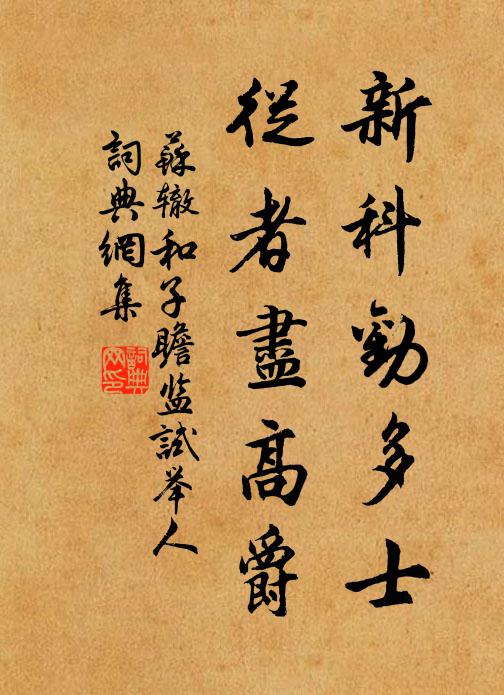 新科勸多士
從者盡高爵
蘇辙和子瞻监試举人
詞典網集
詞典网印